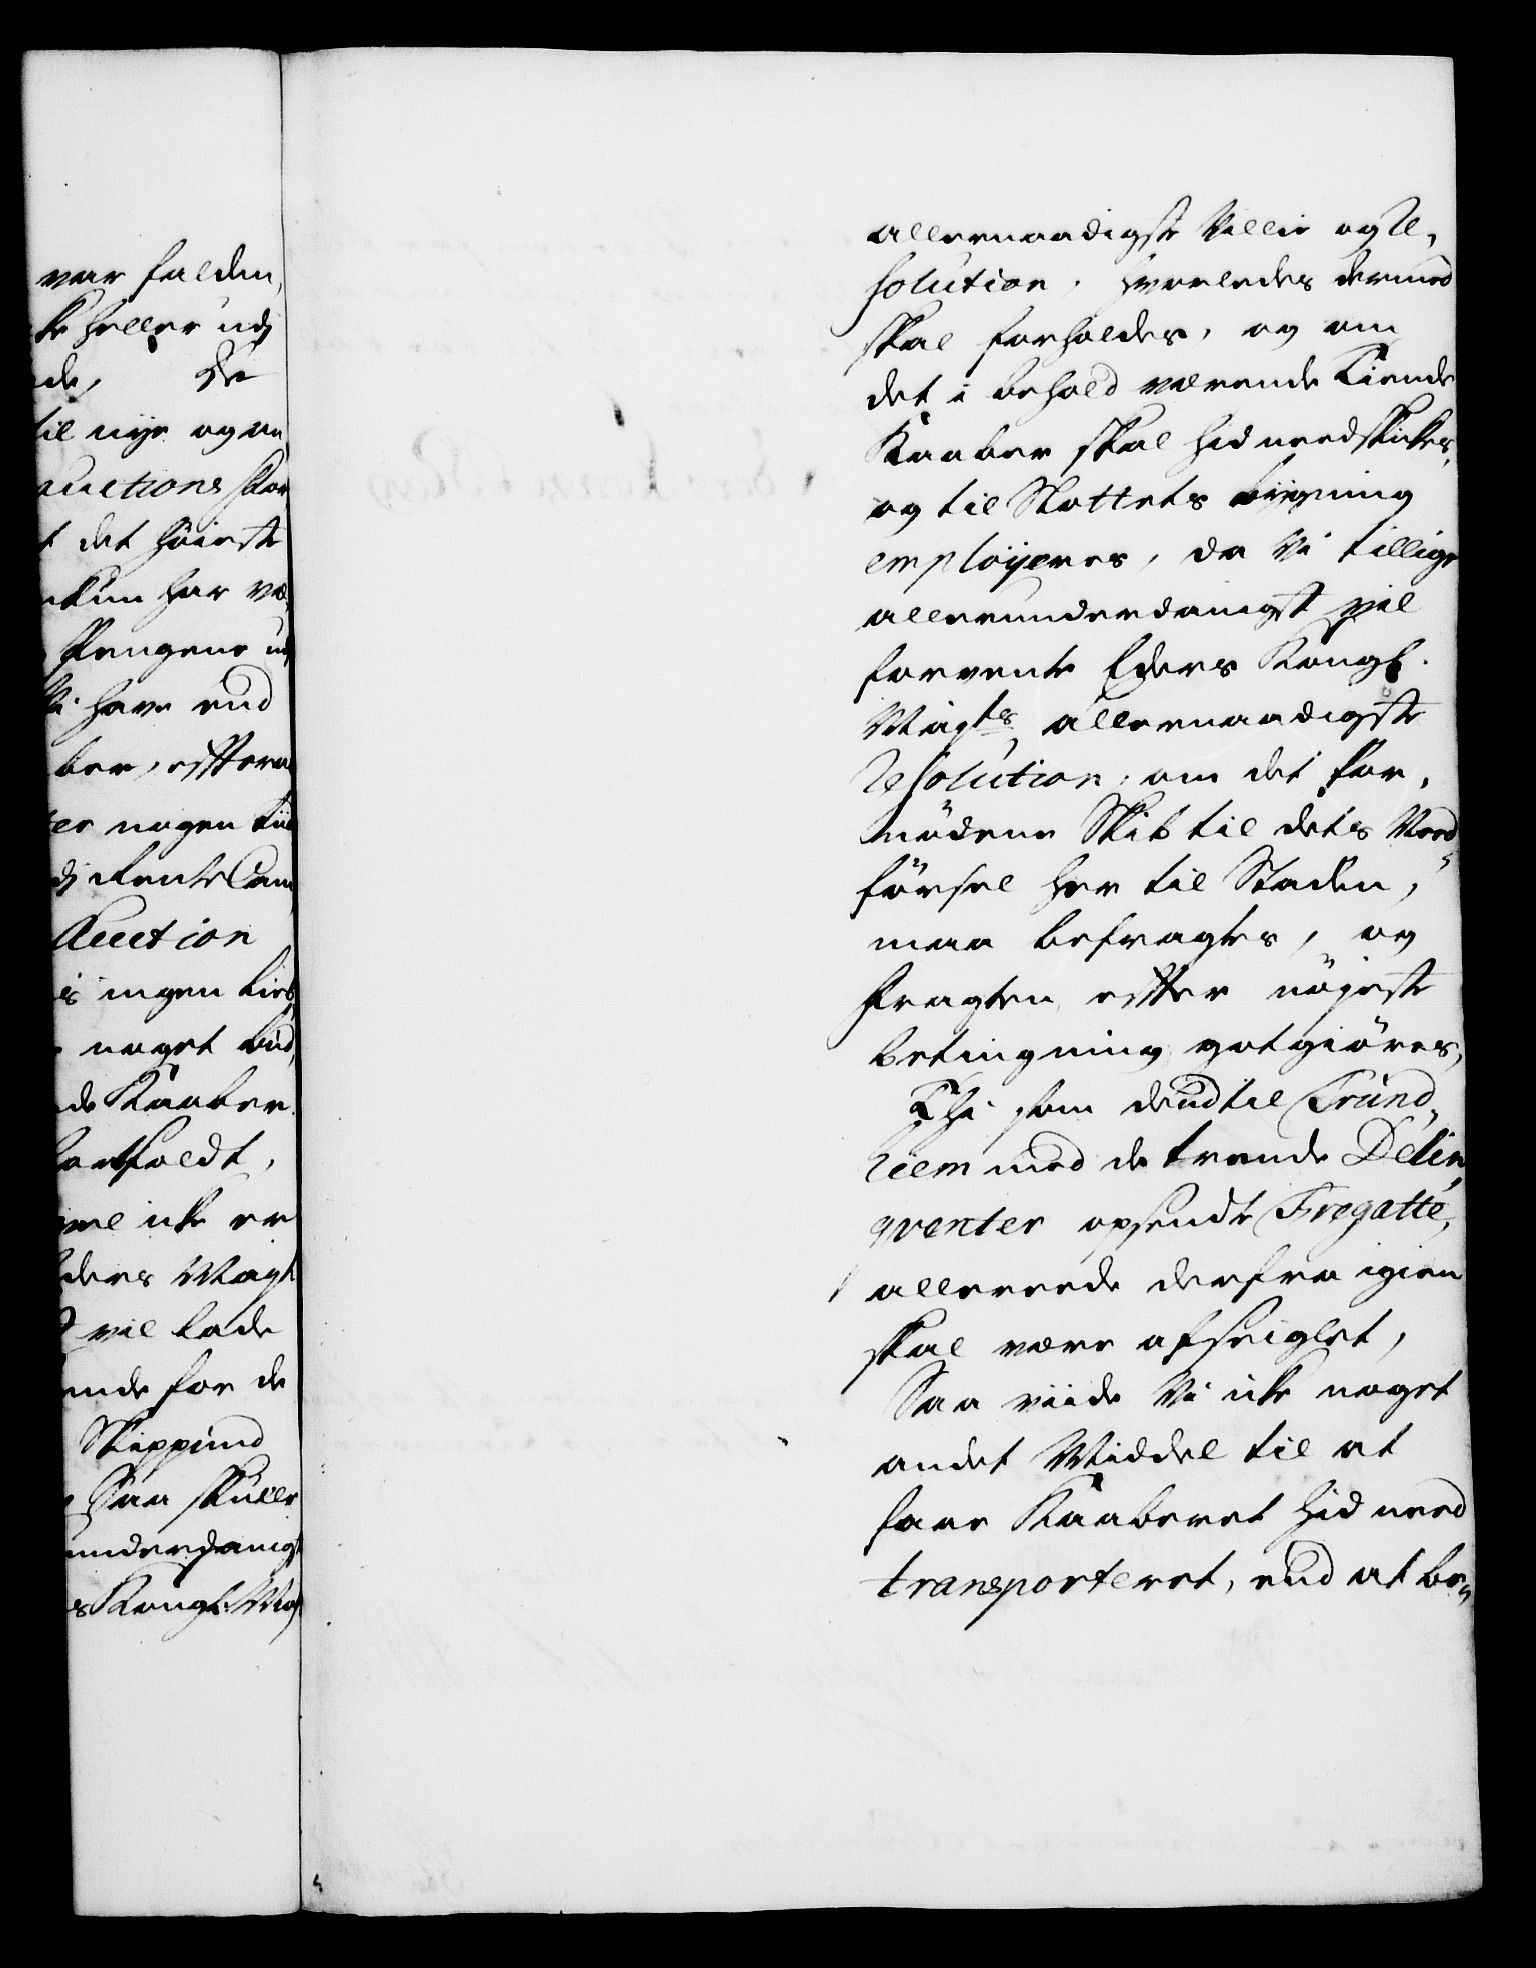 var falden,
ke heller udj
de, De
til nye og an
auctions for
t det høieste
nkun har væ,
Pengene ud
Vi have end
ber, effter at
ter nogen tiid
dj Rente Cam
Auction
is ingen lieb
noget bud,
de Kaaber
forfoldt,
vel icke er
Eders Mayt
vil lade
ende for de
Skippund
Saa skulle
underdanigst
s Kongl: May
allernaadigste Villie og Re,
solution, hvorledes dermed
skal forholdes, og om
det i behold værende Tiende
Kaaber skal hid needskikes,
og til Slottets bygning
employeres, da Vi tillige
allerunderdanigst vil
forvente Eders Kongl.
Mayts allernaadigste
Resolution, om det for,
nødene Skib til dets Need,
førsel her til Staden,
maa befragtes, og
fragten effter nøyeste
betingning godtgiøres,
Thi som dend til Trund,
hiem med de trende Delin,
qventer opsendte Fregatte,
allereede derfra igien
skal være afseiglet,
Saa viide Vi icke noget
andet Middel til at
faae Kaaberet hid need
transporteret, end at be,